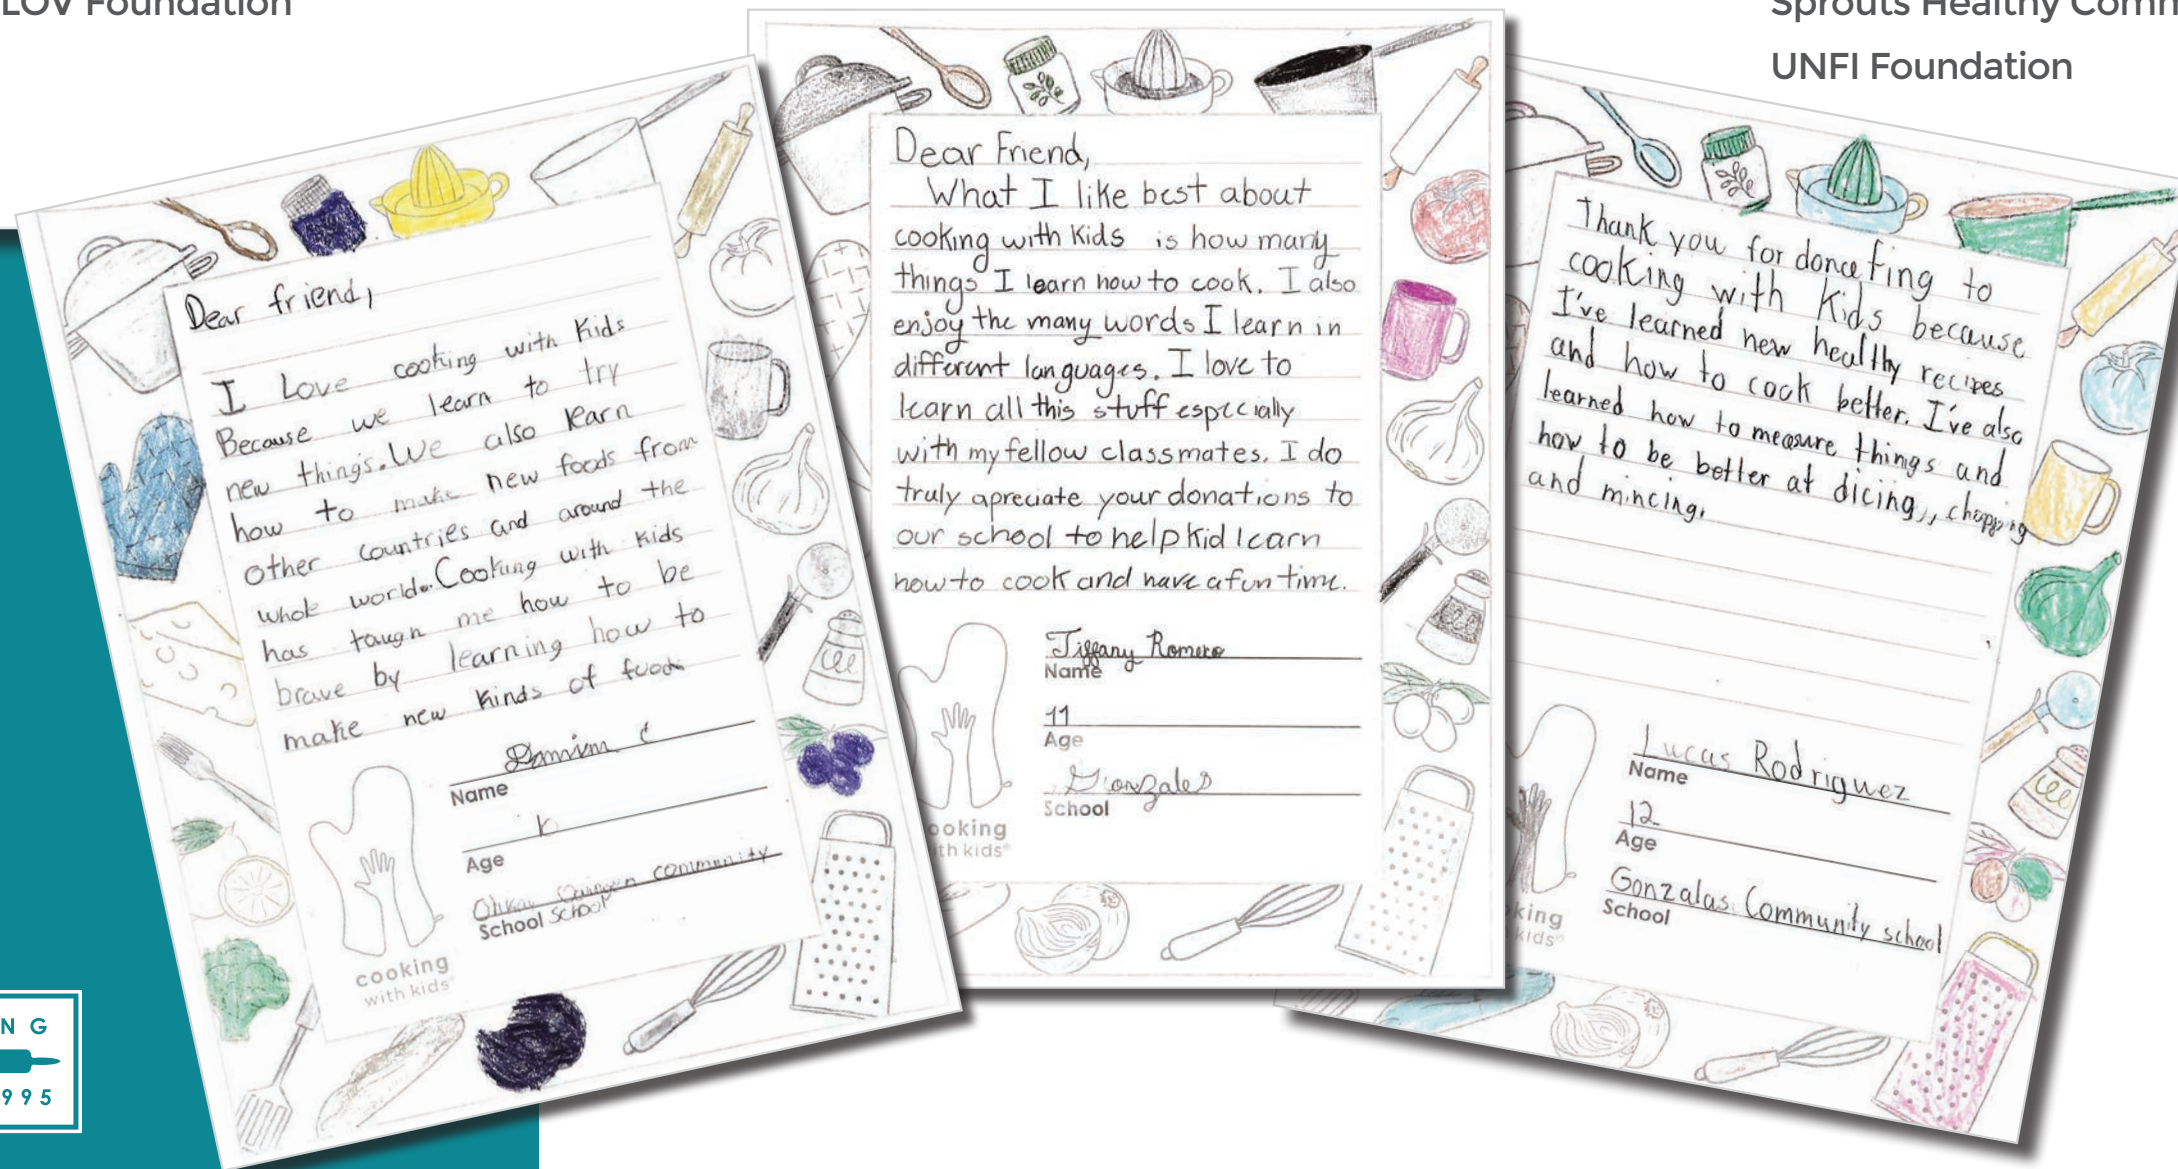 LOV Foundation
Sprouts Healthy Comm
UNFI Foundation
Dear friend,
I Love cooking with Kids
Because we learn to try
new things. We also learn
how to make new foods from
other countries and around the
whole world. Cooking with kids
has taugh me how to be
brave by learning how to
make new kinds of foods
Name
Age
community
School School
cooking
with kids®
Dear Friend,
What I like best about
cooking with Kids is how many
things I learn how to cook. I also
enjoy the many words I learn in
different languages. I love to
learn all this stuff especially
with my fellow classmates. I do
truly apreciate your donations to
our school to help kid learn
how to cook and have a fun time.
Tiffany Romero
Name
11
Age
Gonzales
School
ooking
th kids®
Thank you for donating to
cooking with Kids because
I've learned new healthy recipes
and how to cook better. I've also
learned how to measure things and
how to be better at dicing,, chopping
and mincing.
Lucas Rodriguez
Name
12
Age
Gonzalas Community school
School
king
kids®
N G
995